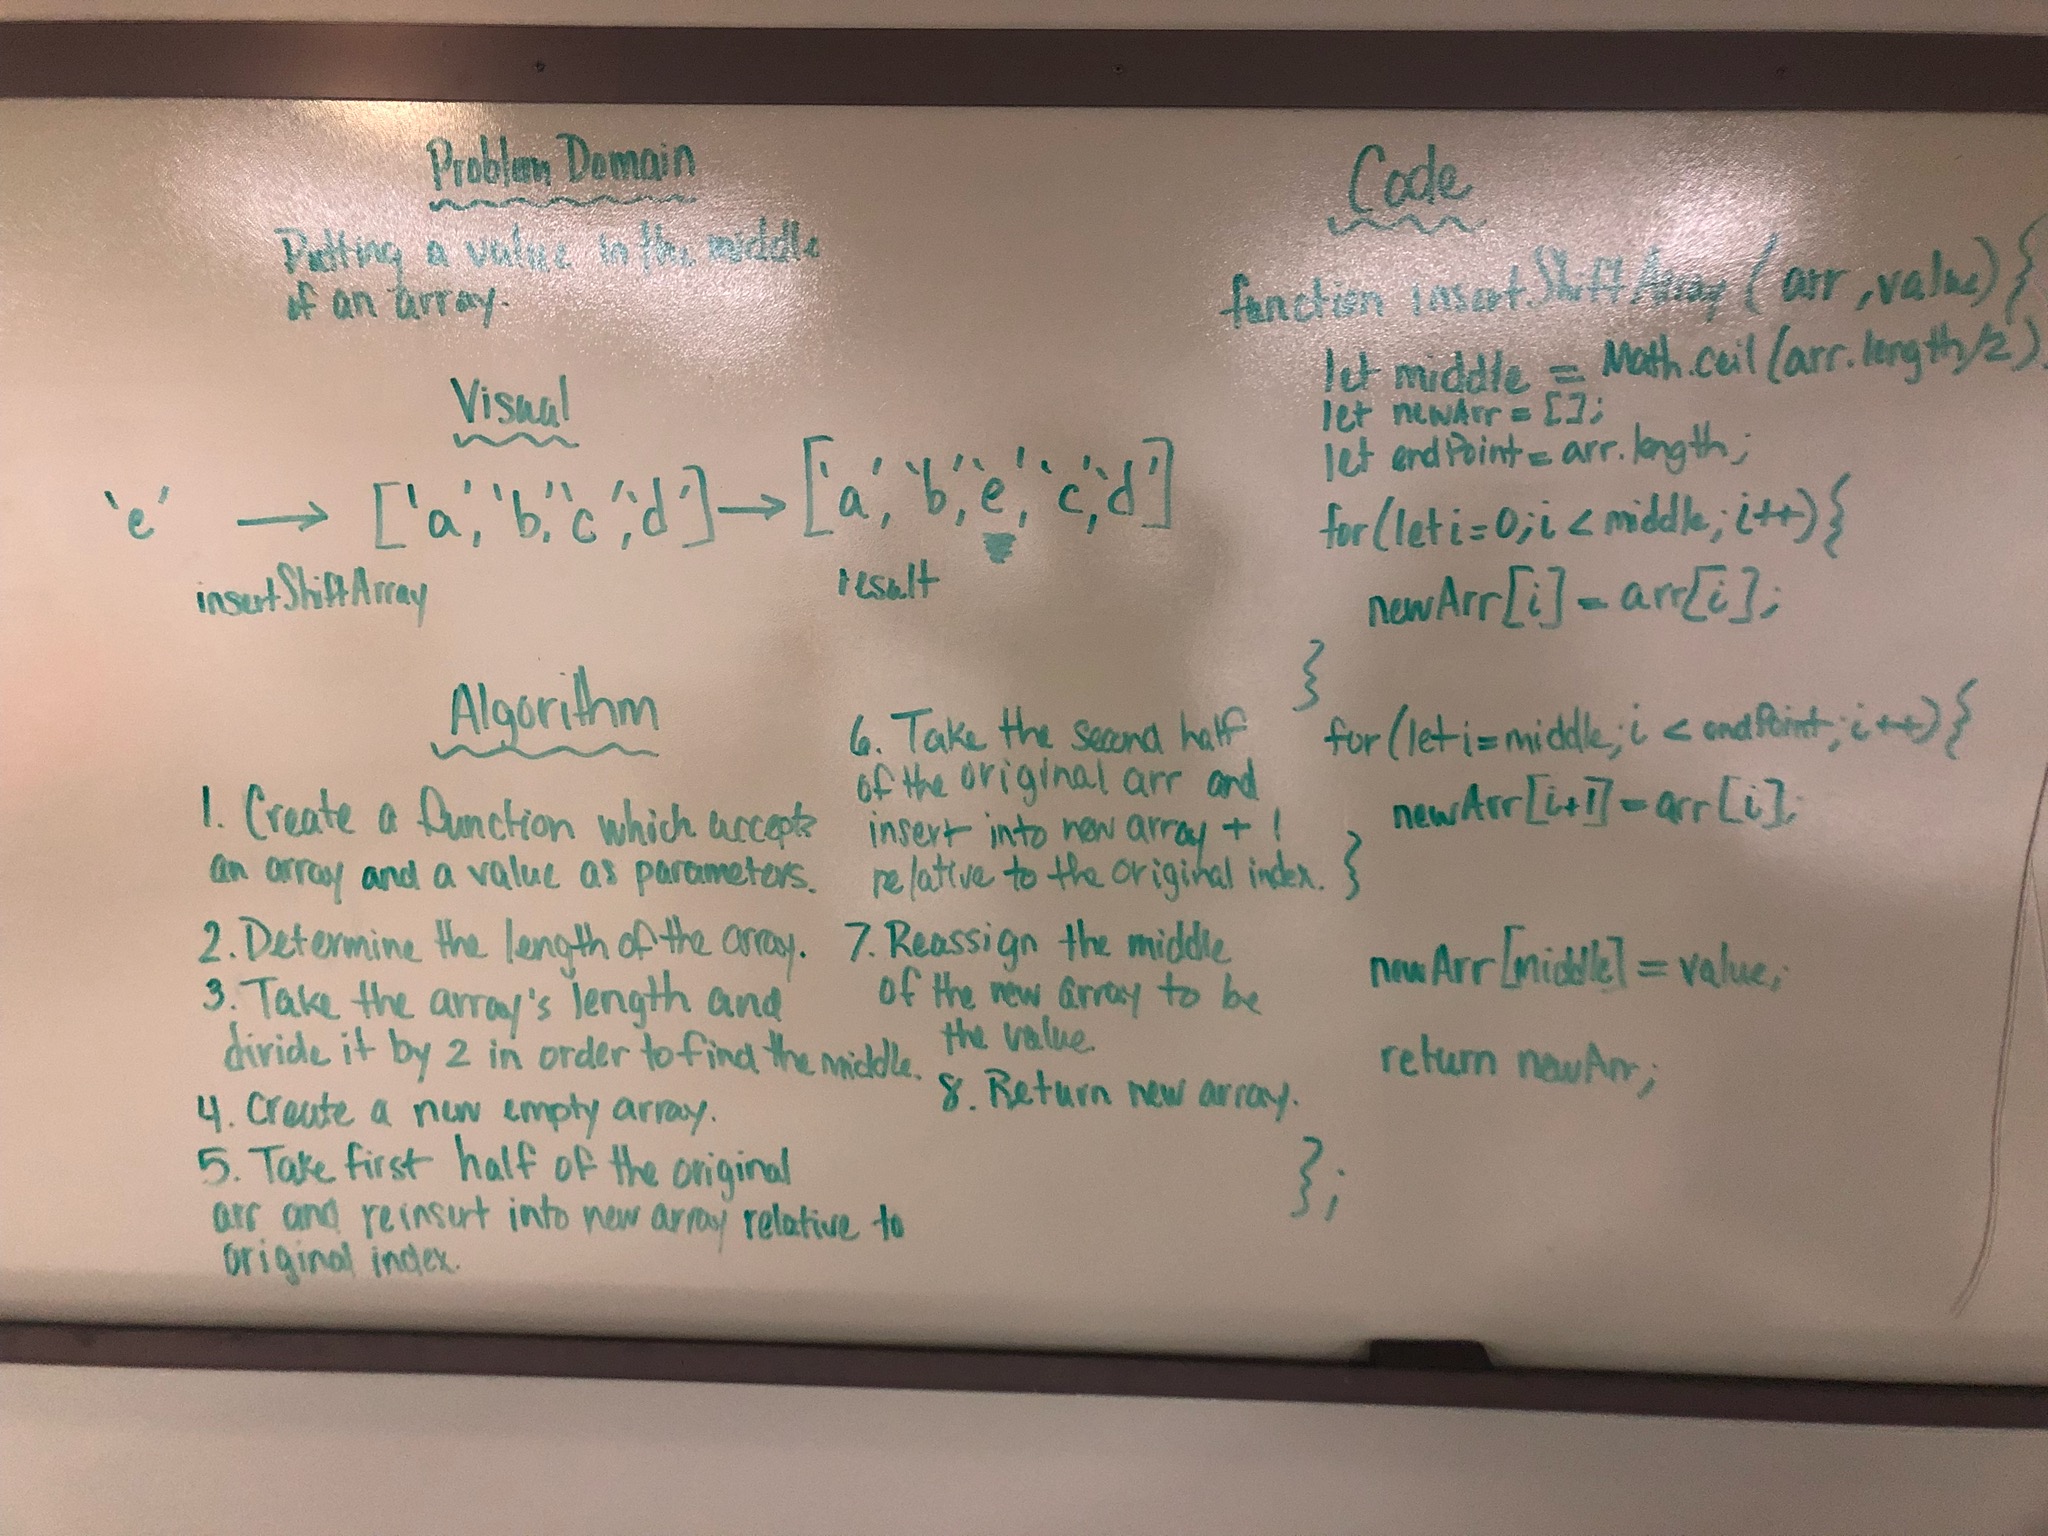 Problem Domain
Putting a value in the middle
of an array.
Visual
'e' → ['a', 'b', 'c', 'd'] → ['a', 'b', 'e', 'c', 'd']
insertShiftArray
result
Algorithm
1. Create a function which accepts
an array and a value as parameters.
2. Determine the length of the array.
3. Take the array's length and
divide it by 2 in order to find the middle.
4. Create a new empty array.
5. Take first half of the original
arr and reinsert into new array relative to
original index.
6. Take the second half
of the original arr and
insert into new array + 1
relative to the original index.
7. Reassign the middle
of the new array to be
the value.
8. Return new array.
Code
function insertShiftArray (arr, value) {
let middle = Math.ceil(arr.length/2);
let newArr = [];
let endPoint = arr.length;
for(let i=0; i < middle; i++){
newArr[i] = arr[i];
}
for(let i=middle; i < endPoint; i++){
newArr[i+1] = arr[i];
}
newArr[middle] = value;
return newArr;
};